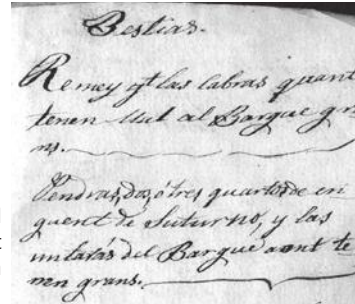 Bestias.
Remey pt las cabras quant
tenen llut al Bargue gra
ns.
Pendras, dos, ó tres quartos de en
guent de Suturno, y las
untarás del Bargue aont te
nen grans.